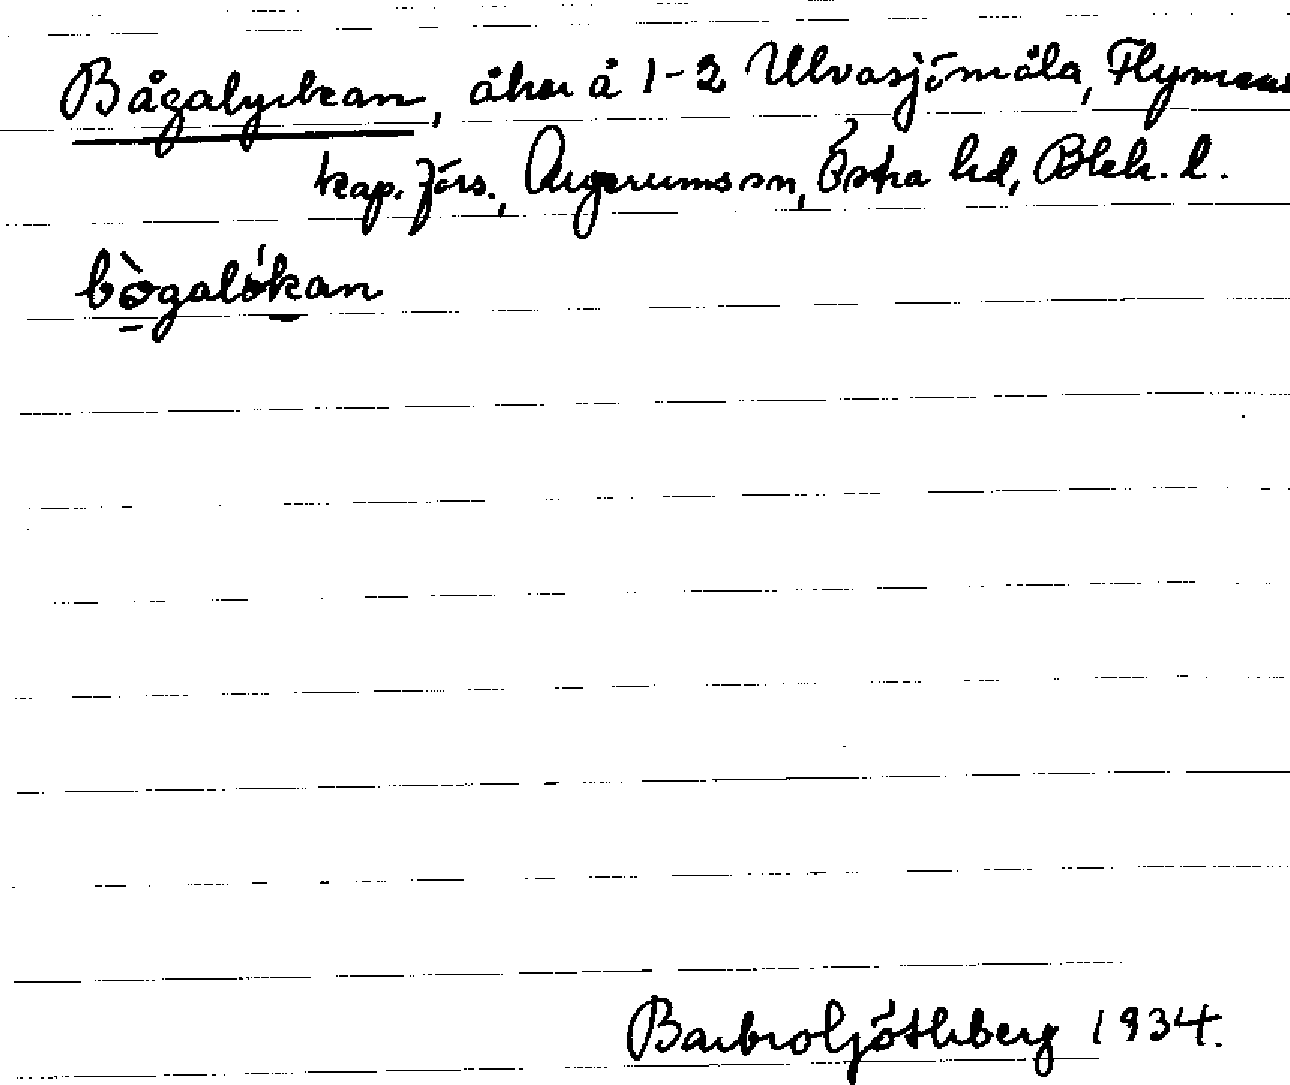 Bågalyckan, åker å 1-2 Ulvasjömåla, Flymens
kap. förs., Augerums sn, Östra hd, Blek. l.
bògalókan
Barbro Göthberg 1934.